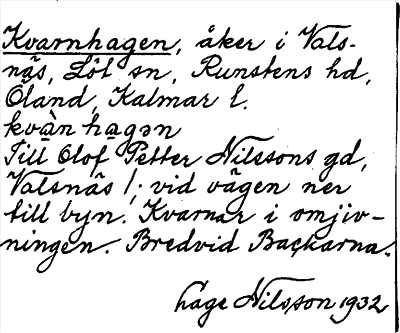 Kvarnhagen, åker i Vals-
näs, Löt sn, Runstens hd,
Öland, Kalmar l.
kvàn hagən
Till Olof Petter Nilssons gd,
Valsnäs 1; vid vägen ner
till byn. Kvarnar i omjiv-
ningen. Bredvid Backarna.
Åage Nilsson 1932